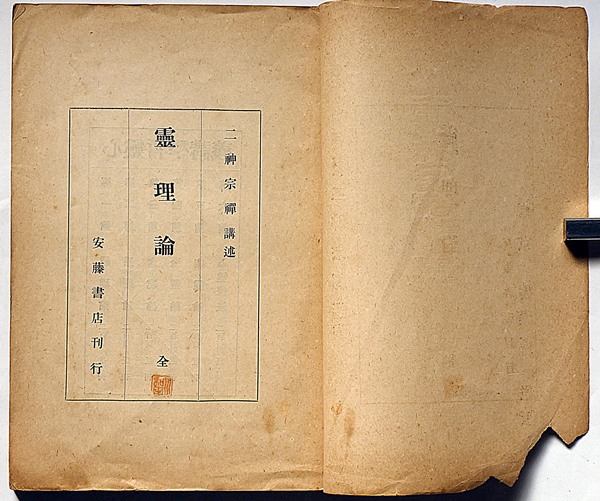 二神宗禪講述
靈理論 全
安藤書店刊行